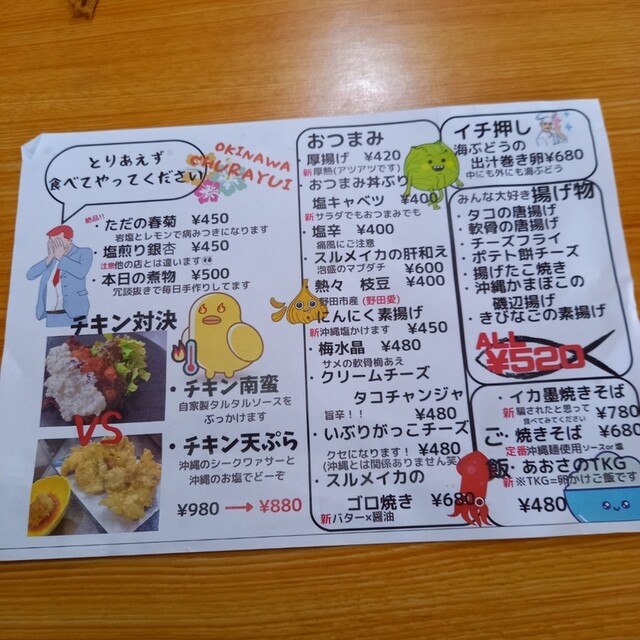 とりあえず
食べてやってください
OKINAWA
CHURAYUI
絶品!!
・ただの春菊 ¥450
岩塩とレモンで病みつきになります
・塩煎り銀杏 ¥450
注意他の店とは違います
・本日の煮物 ¥500
冗談抜きで毎日手作りしてます
チキン対決
VS
・チキン南蛮
自家製タルタルソースを
ぶっかけます
・チキン天ぷら
沖縄のシークワァサーと
沖縄のお塩でどーぞ
¥980 → ¥880
おつまみ
・厚揚げ ¥420
新厚熱(アツアツです)
・おつまみ丼ぶり
塩キャベツ ¥400
新サラダでもおつまみでも
・塩辛 ¥400
痛風にご注意
・スルメイカの肝和え
泡盛のマブダチ ¥600
・熱々 枝豆 ¥400
野田市産(野田愛)
・にんにく素揚げ
新沖縄塩かけます ¥450
・梅水晶 ¥480
サメの軟骨梅あえ
・クリームチーズ
タコチャンジャ
旨辛!! ¥480
・いぶりがっこチーズ
クセになります! ¥480
(沖縄とは関係ありません笑)
・スルメイカの
ゴロ焼き ¥680
新バター×醤油
イチ押し
海ぶどうの
出汁巻き卵¥680
中にも外にも海ぶどう
みんな大好き揚げ物
・タコの唐揚げ
・軟骨の唐揚げ
・チーズフライ
・ポテト餅チーズ
・揚げたこ焼き
・沖縄かまぼこの
磯辺揚げ
・きびなごの素揚げ
ALL
¥520
ご飯
・イカ墨焼きそば
新騙されたと思って
食べてみてください ¥780
・焼きそば ¥680
定番沖縄麺使用ソースor塩
・あおさのTKG
新※TKG=卵かけご飯です
¥480